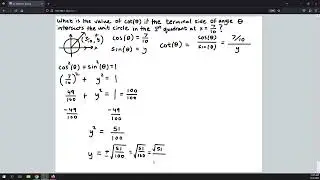 What is the value of cot(θ) if the terminal side of angle θ
intersects the unit circle in the 1st quadrant at x = 7/10 ?
(7/10, y)
cos(θ) = 7/10
sin(θ) = y
cot(θ) = cos(θ)/sin(θ) = 7/10 / y
cos²(θ) + sin²(θ) = 1
(7/10)² + y² = 1
49/100 + y² = 1 = 100/100
-49/100 -49/100
y² = 51/100
y = ±√51/100 = √51/100 = √51